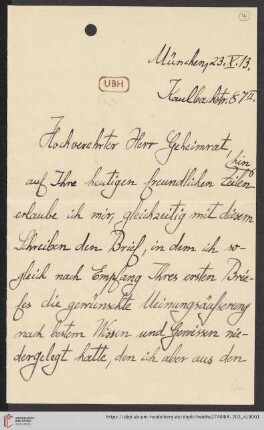 4
München, 23. V. 13.
Kaulbachstr. 87 II.
UBH
Hochverehrter Herr Geheimrat,
auf Ihre heutigen freundlichen Zeilen hin
erlaube ich mir, gleichzeitig mit diesem
Schreiben den Brief, in dem ich so-
gleich nach Empfang Ihres ersten Brie-
fes die gewünschte Meinungsäußerung
nach bestem Wissen und Gewissen nie-
dergelegt hatte, den ich aber aus den